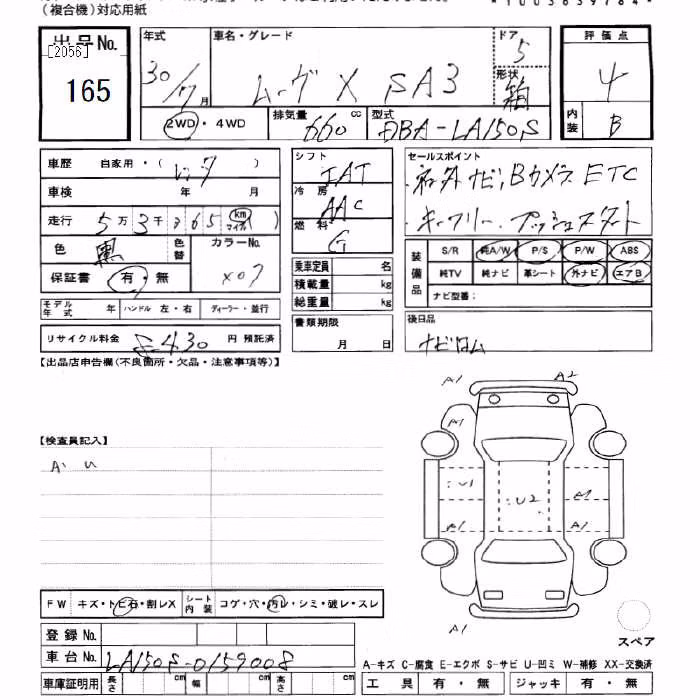 (複合機)対応用紙
出品No.
[2056]
165
年式 30/7月
車名・グレード ムーヴ X SA3
ドア 5
形状 箱
評価点 4
内装 B
2WD・4WD
排気量 660 cc
型式 DBA-LA150S
車歴 自家用・( レンタ )
車検 年 月
走行 5万3千365 km マイル( )
色 黒 色替 カラーNo. X07
保証書 有・無
モデル年式 年 ハンドル 左・右 ディーラー・並行
リサイクル料金 6430 円 預託済
シフト IAT
冷房 AAC
燃料 G
乗車定員 名
積載量 kg
総重量 kg
書類期限
月 日
セールスポイント
ナビ,Bカメラ ETC
キーフリー プッシュスタート
装備品
S/R 純A/W P/S P/W ABS
純TV 純ナビ 革シート 外ナビ エアB
ナビ型番:
後日品
ナビロム
【出品店申告欄(不良箇所・欠品・注意事項等)】
【検査員記入】
A・U
A1 A2
A1
U1 U2 A1
A1 A1
A1
FW キズ・トビ石・割レX シート内装 コゲ・穴・汚レ・シミ・破レ・スレ
登録No.
車台No. LA150S-0159008
車庫証明用 長さ cm 幅 cm 高さ cm
スペア
A-キズ C-腐食 E-エクボ S-サビ U-凹ミ W-補修 XX-交換済
工具 有・無 ジャッキ 有・無